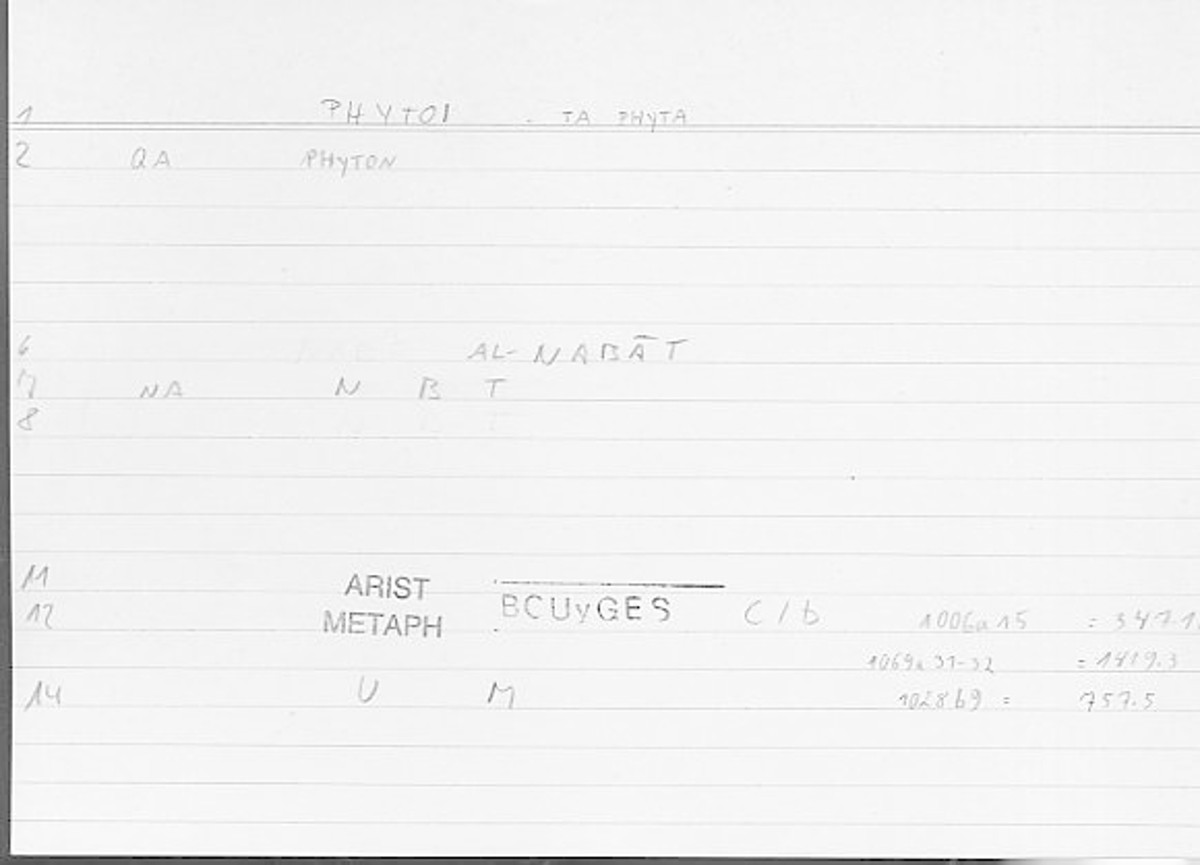 1 PHYTOI - TA PHYTA
2 QA PHYTON
6 AL-NABĀT
7 NA N B T
8
11 ARIST
12 METAPH BCUyGES C/b 1006a15 = 347.1
1069a 31-32 = 1419.3
14 U M 1028b9 = 757.5